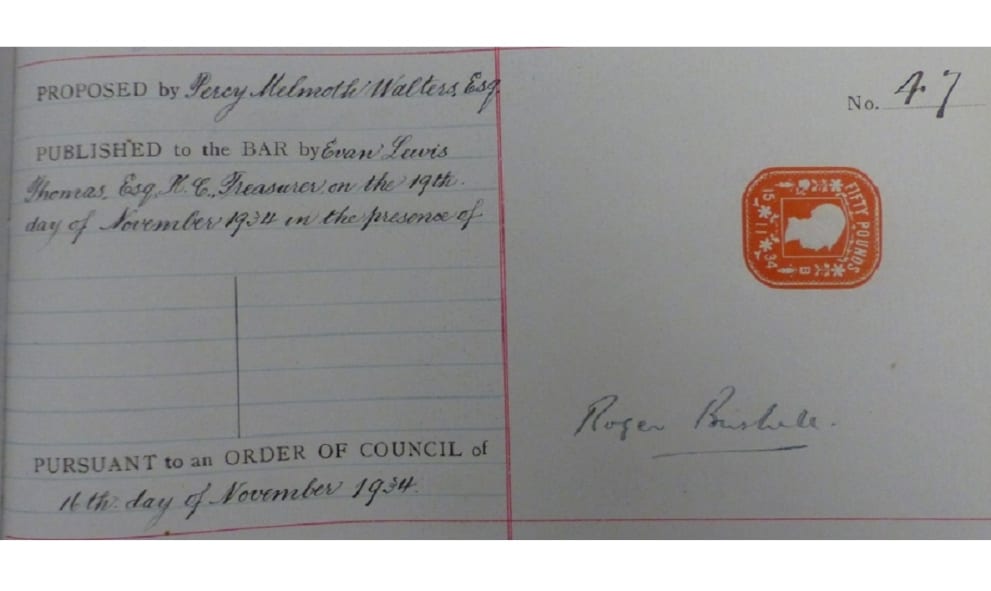 PROPOSED by Percy Melmoth Walters, Esq.
PUBLISHED to the BAR by Evan Lewis
Thomas, Esq., K.C., Treasurer on the 19th.
day of November 1934 in the presence of
PURSUANT to an ORDER OF COUNCIL of
16th. day of November 1934.
No. 47
FIFTY POUNDS
15 1 34
B
Roger Bushell.